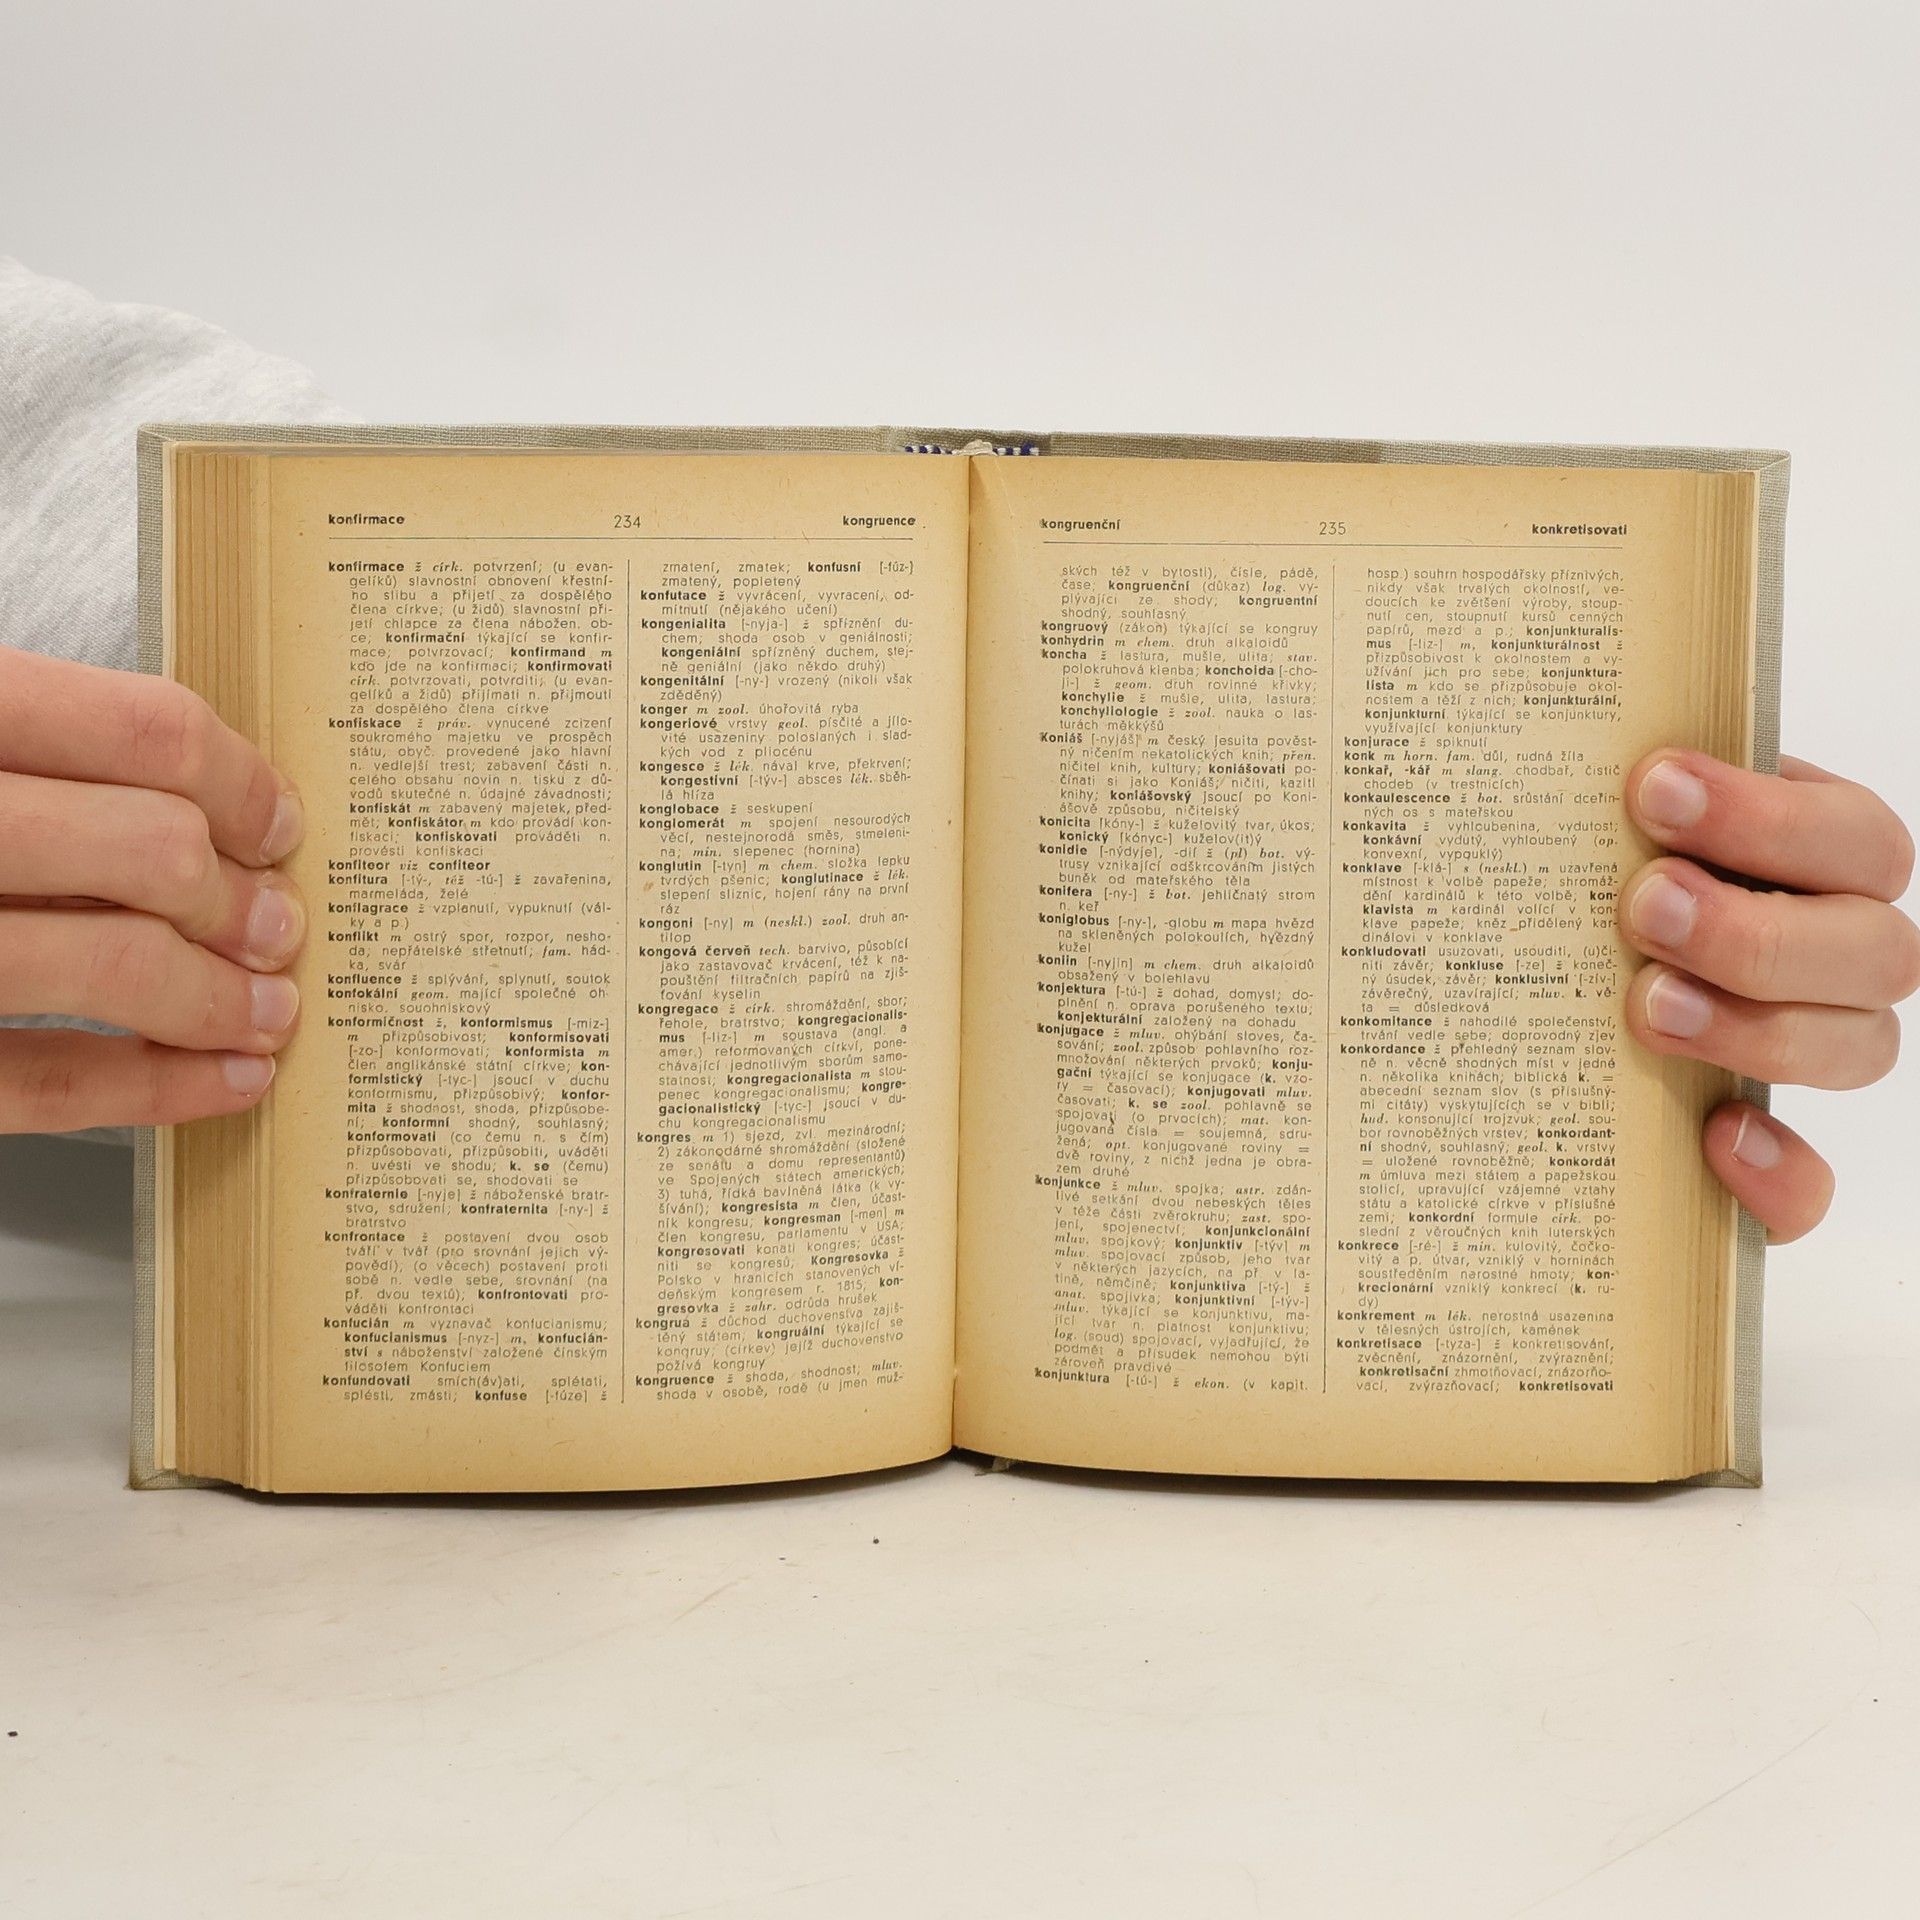 konfirmace 234 kongruence
konfirmace ž círk. potvrzení; (u evan-
gelíků) slavnostní obnovení křestní-
ho slibu a přijetí za dospělého
člena církve; (u židů) slavnostní při-
jetí chlapce za člena nábožen. ob-
ce; konfirmační týkající se konfir-
mace; potvrzovací; konfirmand m
kdo jde na konfirmaci; konfirmovati
círk. potvrzovati, potvrditi; (u evan-
gelíků a židů) přijímati n. přijmouti
za dospělého člena církve
konfiskace ž práv. vynucené zcizení
soukromého majetku ve prospěch
státu, obyč. provedené jako hlavní
n. vedlejší trest; zabavení části n.
celého obsahu novin n. tisku z dů-
vodů skutečné n. údajné závadnosti;
konfiskát m zabavený majetek, před-
mět; konfiskátor m kdo provádí kon-
fiskaci; konfiskovati prováděti n.
provésti konfiskaci
konfiteor viz confiteor
konfitura [-tý-, též -tú-] ž zavařenina,
marmeláda, želé
konflagrace ž vzplanutí, vypuknutí (vál-
ky a p.)
konflikt m ostrý spor, rozpor, nesho-
da; nepřátelské střetnutí; fam. hád-
ka, svár
konfluence ž splývání, splynutí, soutok
konfokální geom. mající společné oh-
nisko, souohniskový
konformičnost ž, konformismus [-miz-]
m přizpůsobivost; konformisovati
[-zo-] konformovati; konformista m
člen anglikánské státní církve; kon-
formistický [-tyc-] jsoucí v duchu
konformismu, přizpůsobivý; konfor-
mita ž shodnost, shoda, přizpůsobe-
ní; konformní shodný, souhlasný;
konformovati (co čemu n. s čím)
přizpůsobovati, přizpůsobiti, uváděti
n. uvésti ve shodu; k. se (čemu)
přizpůsobovati se, shodovati se
konfraternie [-nyje] ž náboženské bratr-
stvo, sdružení; konfraternita [-ny-] ž
bratrstvo
konfrontace ž postavení dvou osob
tváří v tvář (pro srovnání jejich vý-
povědí); (o věcech) postavení proti
sobě n. vedle sebe, srovnání (na
př. dvou textů); konfrontovati pro-
váděti konfrontaci
konfucián m vyznavač konfucianismu;
konfucianismus [-nyz-] m, konfucián-
ství s náboženství založené čínským
filosofem Konfuciem
konfundovati smích(áv)ati, splétati,
splésti, zmásti; konfuse [-fúze] ž
zmatení, zmatek; konfusní [-fúz-]
zmatený, popletený
konfutace ž vyvrácení, vyvracení, od-
mítnutí (nějakého učení)
kongenialita [-nyja-] ž spříznění du-
chem; shoda osob v geniálnosti;
kongeniální spřízněný duchem, stej-
ně geniální (jako někdo druhý)
kongenitální [-ny-] vrozený (nikoli však
zděděný)
konger m zool. úhořovitá ryba
kongeriové vrstvy geol. písčité a jílo-
vité usazeniny poloslaných i slad-
kých vod z pliocénu
kongesce ž lék. nával krve, překrvení;
kongestivní [-týv-] absces lék. sběh-
lá hlíza
konglobace ž seskupení
konglomerát m spojení nesourodých
věcí, nestejnorodá směs, stmeleni-
na; min. slepenec (hornina)
konglutin [-tyn] m chem. složka lepku
tvrdých pšenic; konglutinace ž lék.
slepení sliznic, hojení rány na první
ráz
kongoni [-ny] m (neskl.) zool. druh an-
tilop
kongová červeň tech. barvivo, působící
jako zastavovač krvácení, též k na-
pouštění filtračních papírů na zjiš-
ťování kyselin
kongregace ž círk. shromáždění, sbor;
řehole, bratrstvo; kongregacionalis-
mus [-liz-] m soustava (angl. a
amer.) reformovaných církví, pone-
chávající jednotlivým sborům samo-
statnost; kongregacionalista m stou-
penec kongregacionalismu; kongre-
gacionalistický [-tyc-] jsoucí v du-
chu kongregacionalismu
kongres m 1) sjezd, zvl. mezinárodní;
2) zákonodárné shromáždění (složené
ze senátu a domu representantů)
ve Spojených státech amerických;
3) tuhá, řídká bavlněná látka (k vy-
šívání); kongresista m člen, účast-
ník kongresu; kongresman [-men] m
člen kongresu, parlamentu v USA;
kongresovati konati kongres; účast-
niti se kongresů; Kongresovka ž
Polsko v hranicích stanovených ví-
deňským kongresem r. 1815; kon-
gresovka ž zahr. odrůda hrušek
kongrua ž důchod duchovenstva zajiš-
těný státem; kongruální týkající se
kongruy; (církev) jejíž duchovenstvo
požívá kongruy
kongruence ž shoda, shodnost; mluv.
shoda v osobě, rodě (u jmen muž-
kongruenční 235 konkretisovati
ských též v bytosti), čísle, pádě,
čase; kongruenční (důkaz) log. vy-
plývající ze shody; kongruentní
shodný, souhlasný
kongruový (zákon) týkající se kongruy
konhydrin m chem. druh alkaloidů
koncha ž lastura, mušle, ulita; stav.
polokruhová klenba; konchoida [-cho-
ji-] ž geom. druh rovinné křivky;
konchylie ž mušle, ulita, lastura;
konchyliologie ž zool. nauka o las-
turách měkkýšů
Koniáš [-nyjáš] m český jesuita pověst-
ný ničením nekatolických knih; přen.
ničitel knih, kultury; koniášovati po-
čínati si jako Koniáš; ničiti, kaziti
knihy; koniášovský jsoucí po Koni-
ášově způsobu, ničitelský
konicita [kóny-] ž kuželovitý tvar, úkos;
konický [kónyc-] kuželov(it)ý
konidie [-nýdyje], -dií ž (pl) bot. vý-
trusy vznikající odškrcováním jistých
buněk od mateřského těla
konifera [-ny-] ž bot. jehličnatý strom
n. keř
koniglobus [-ny-], -globu m mapa hvězd
na skleněných polokoulích, hvězdný
kužel
koniin [-nyjin] m chem. druh alkaloidů
obsažený v bolehlavu
konjektura [-tú-] ž dohad, domysl; do-
plnění n. oprava porušeného textu;
konjekturální založený na dohadu
konjugace ž mluv. ohýbání sloves, ča-
sování; zool. způsob pohlavního roz-
množování některých prvoků; konju-
gační týkající se konjugace (k. vzo-
ry = časovací); konjugovati mluv.
časovati; k. se zool. pohlavně se
spojovati (o prvocích); mat. kon-
jugovaná čísla = soujemná, sdru-
žená; opt. konjugované roviny =
dvě roviny, z nichž jedna je obra-
zem druhé
konjunkce ž mluv. spojka; astr. zdán-
livé setkání dvou nebeských těles
v téže části zvěrokruhu; zast. spo-
jení, spojenectví; konjunkcionální
mluv. spojkový; konjunktiv [-týv] m
mluv. spojovací způsob, jeho tvar
v některých jazycích, na př. v la-
tině, němčině; konjunktiva [-tý-] ž
anat. spojivka; konjunktivní [-týv-]
mluv. týkající se konjunktivu, ma-
jící tvar n. platnost konjunktivu;
log. (soud) spojovací, vyjadřující, že
podmět a přísudek nemohou býti
zároveň pravdivé
konjunktura [-tú-] ž ekon. (v kapit.
hosp.) souhrn hospodářsky příznivých,
nikdy však trvalých okolností, ve-
doucích ke zvětšení výroby, stoup-
nutí cen, stoupnutí kursů cenných
papírů, mezd a p.; konjunkturalis-
mus [-liz-] m, konjunkturálnost ž
přizpůsobivost k okolnostem a vy-
užívání jich pro sebe; konjunktura-
lista m kdo se přizpůsobuje okol-
nostem a těží z nich; konjunkturální,
konjunkturní týkající se konjunktury,
využívající konjunktury
konjurace ž spiknutí
konk m horn. fam. důl, rudná žíla
konkař, -kář m slang. chodbař, čistič
chodeb (v trestnicích)
konkaulescence ž bot. srůstání dceřin-
ných os s mateřskou
konkavita ž vyhloubenina, vydutost;
konkávní vydutý, vyhloubený (op.
konvexní, vypouklý)
konklave [-klá-] s (neskl.) m uzavřená
místnost k volbě papeže; shromáž-
dění kardinálů k této volbě; kon-
klavista m kardinál volící v kon-
klave papeže; kněz přidělený kar-
dinálovi v konklave
konkludovati usuzovati, usouditi, (u)či-
niti závěr; konkluse [-ze] ž koneč-
ný úsudek, závěr; konklusivní [-zív-]
závěrečný, uzavírající; mluv. k. vě-
ta = důsledková
konkomitance ž nahodilé společenství,
trvání vedle sebe; doprovodný zjev
konkordance ž přehledný seznam slov-
ně n. věcně shodných míst v jedné
n. několika knihách; biblická k. =
abecední seznam slov (s příslušný-
mi citáty) vyskytujících se v bibli;
hud. konsonující trojzvuk; geol. sou-
bor rovnoběžných vrstev; konkordant-
ní shodný, souhlasný; geol. k. vrstvy
= uložené rovnoběžně; konkordát
m úmluva mezi státem a papežskou
stolicí, upravující vzájemné vztahy
státu a katolické církve v příslušné
zemi; konkordní formule círk. po-
slední z věroučných knih luterských
konkrece [-ré-] ž min. kulovitý, čočko-
vitý a p. útvar, vzniklý v horninách
soustředěním narostné hmoty; kon-
krecionární vzniklý konkrecí (k. ru-
dy)
konkrement m lék. nerostná usazenina
v tělesných ústrojích, kamének
konkretisace [-tyza-] ž konkretisování,
zvěcnění, znázornění, zvýraznění;
konkretisační zhmotňovací, znázorňo-
vací, zvýrazňovací; konkretisovati